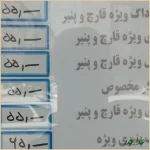 داگ ویژه قارچ و پنیر ۵۵,۰۰۰
ویژه قارچ و پنیر ۵۵,۰۰۰
ی ویژه قارچ و پنیر ۵۵,۰۰۰
مخصوص ۵۵,۰۰۰
ی ویژه قارچ و پنیر ۵۵,۰۰۰
ویژه ۶۵,۰۰۰